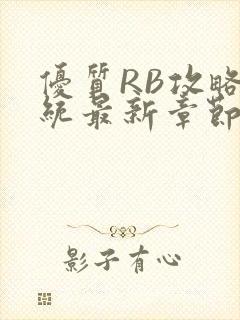 優質RB攻略
統最新章節
影子有心